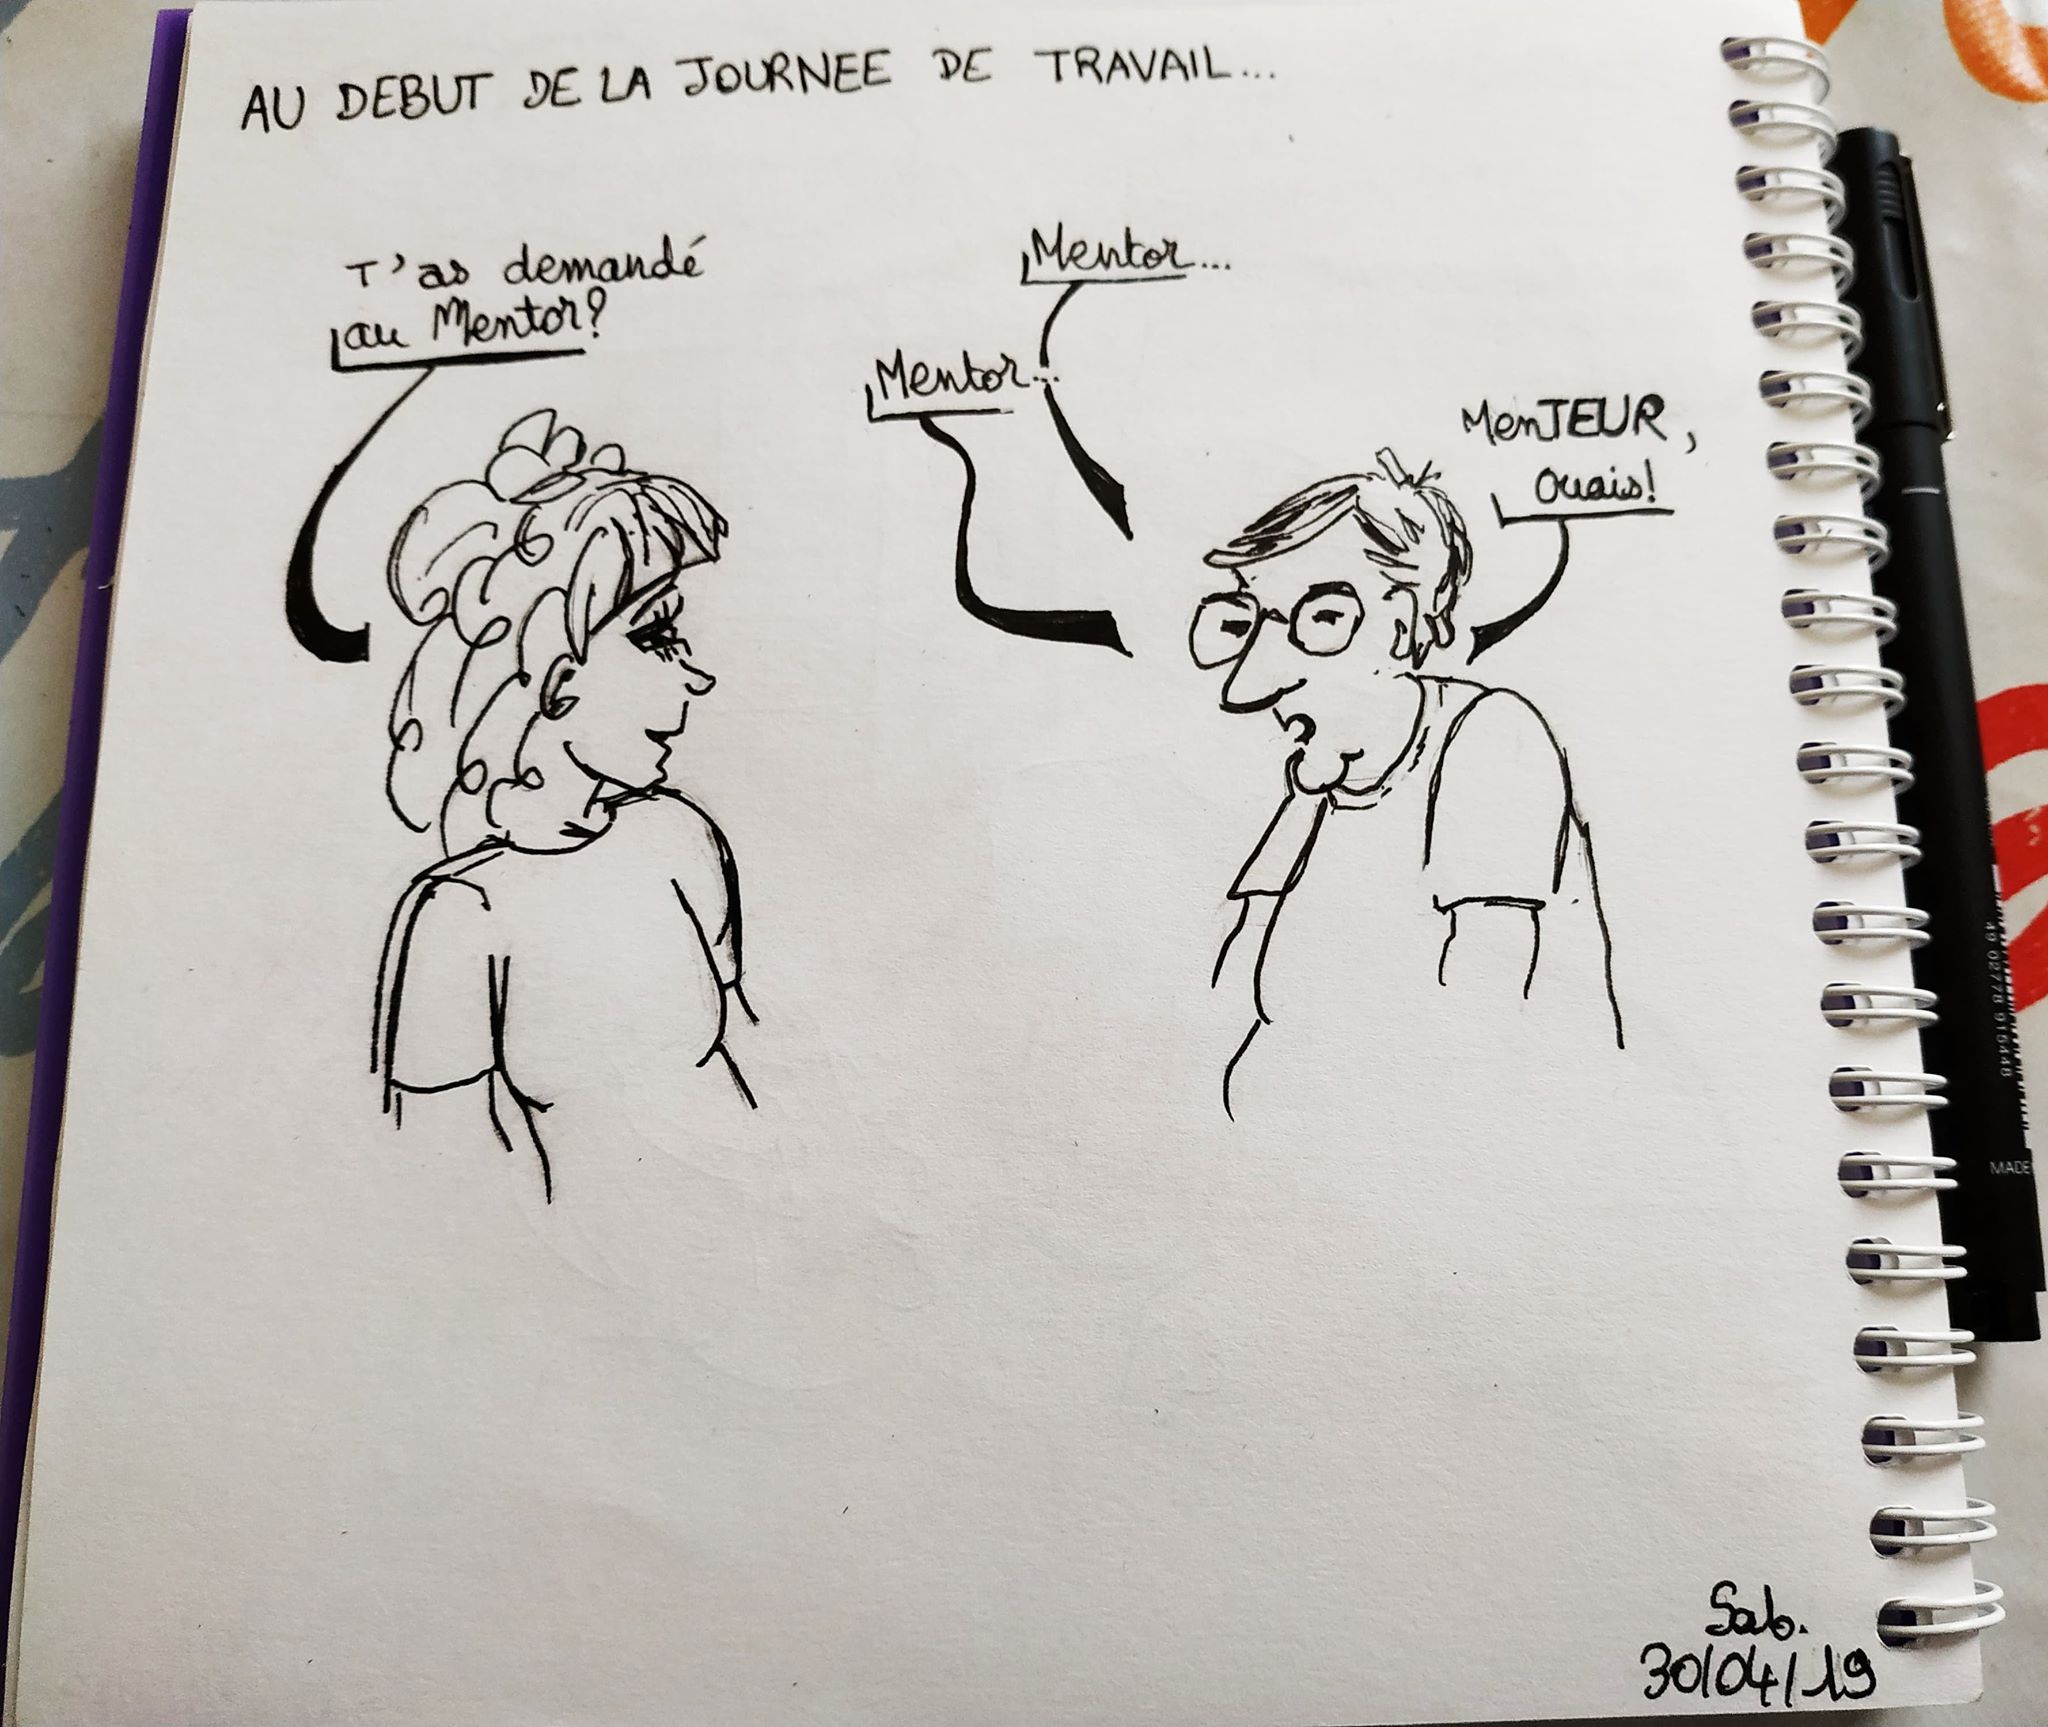 AU DEBUT DE LA JOURNEE DE TRAVAIL...
T'as demandé
au Mentor?
Mentor...
Mentor...
MenTEUR,
Ouais!
Sab.
30/04/19
MADE